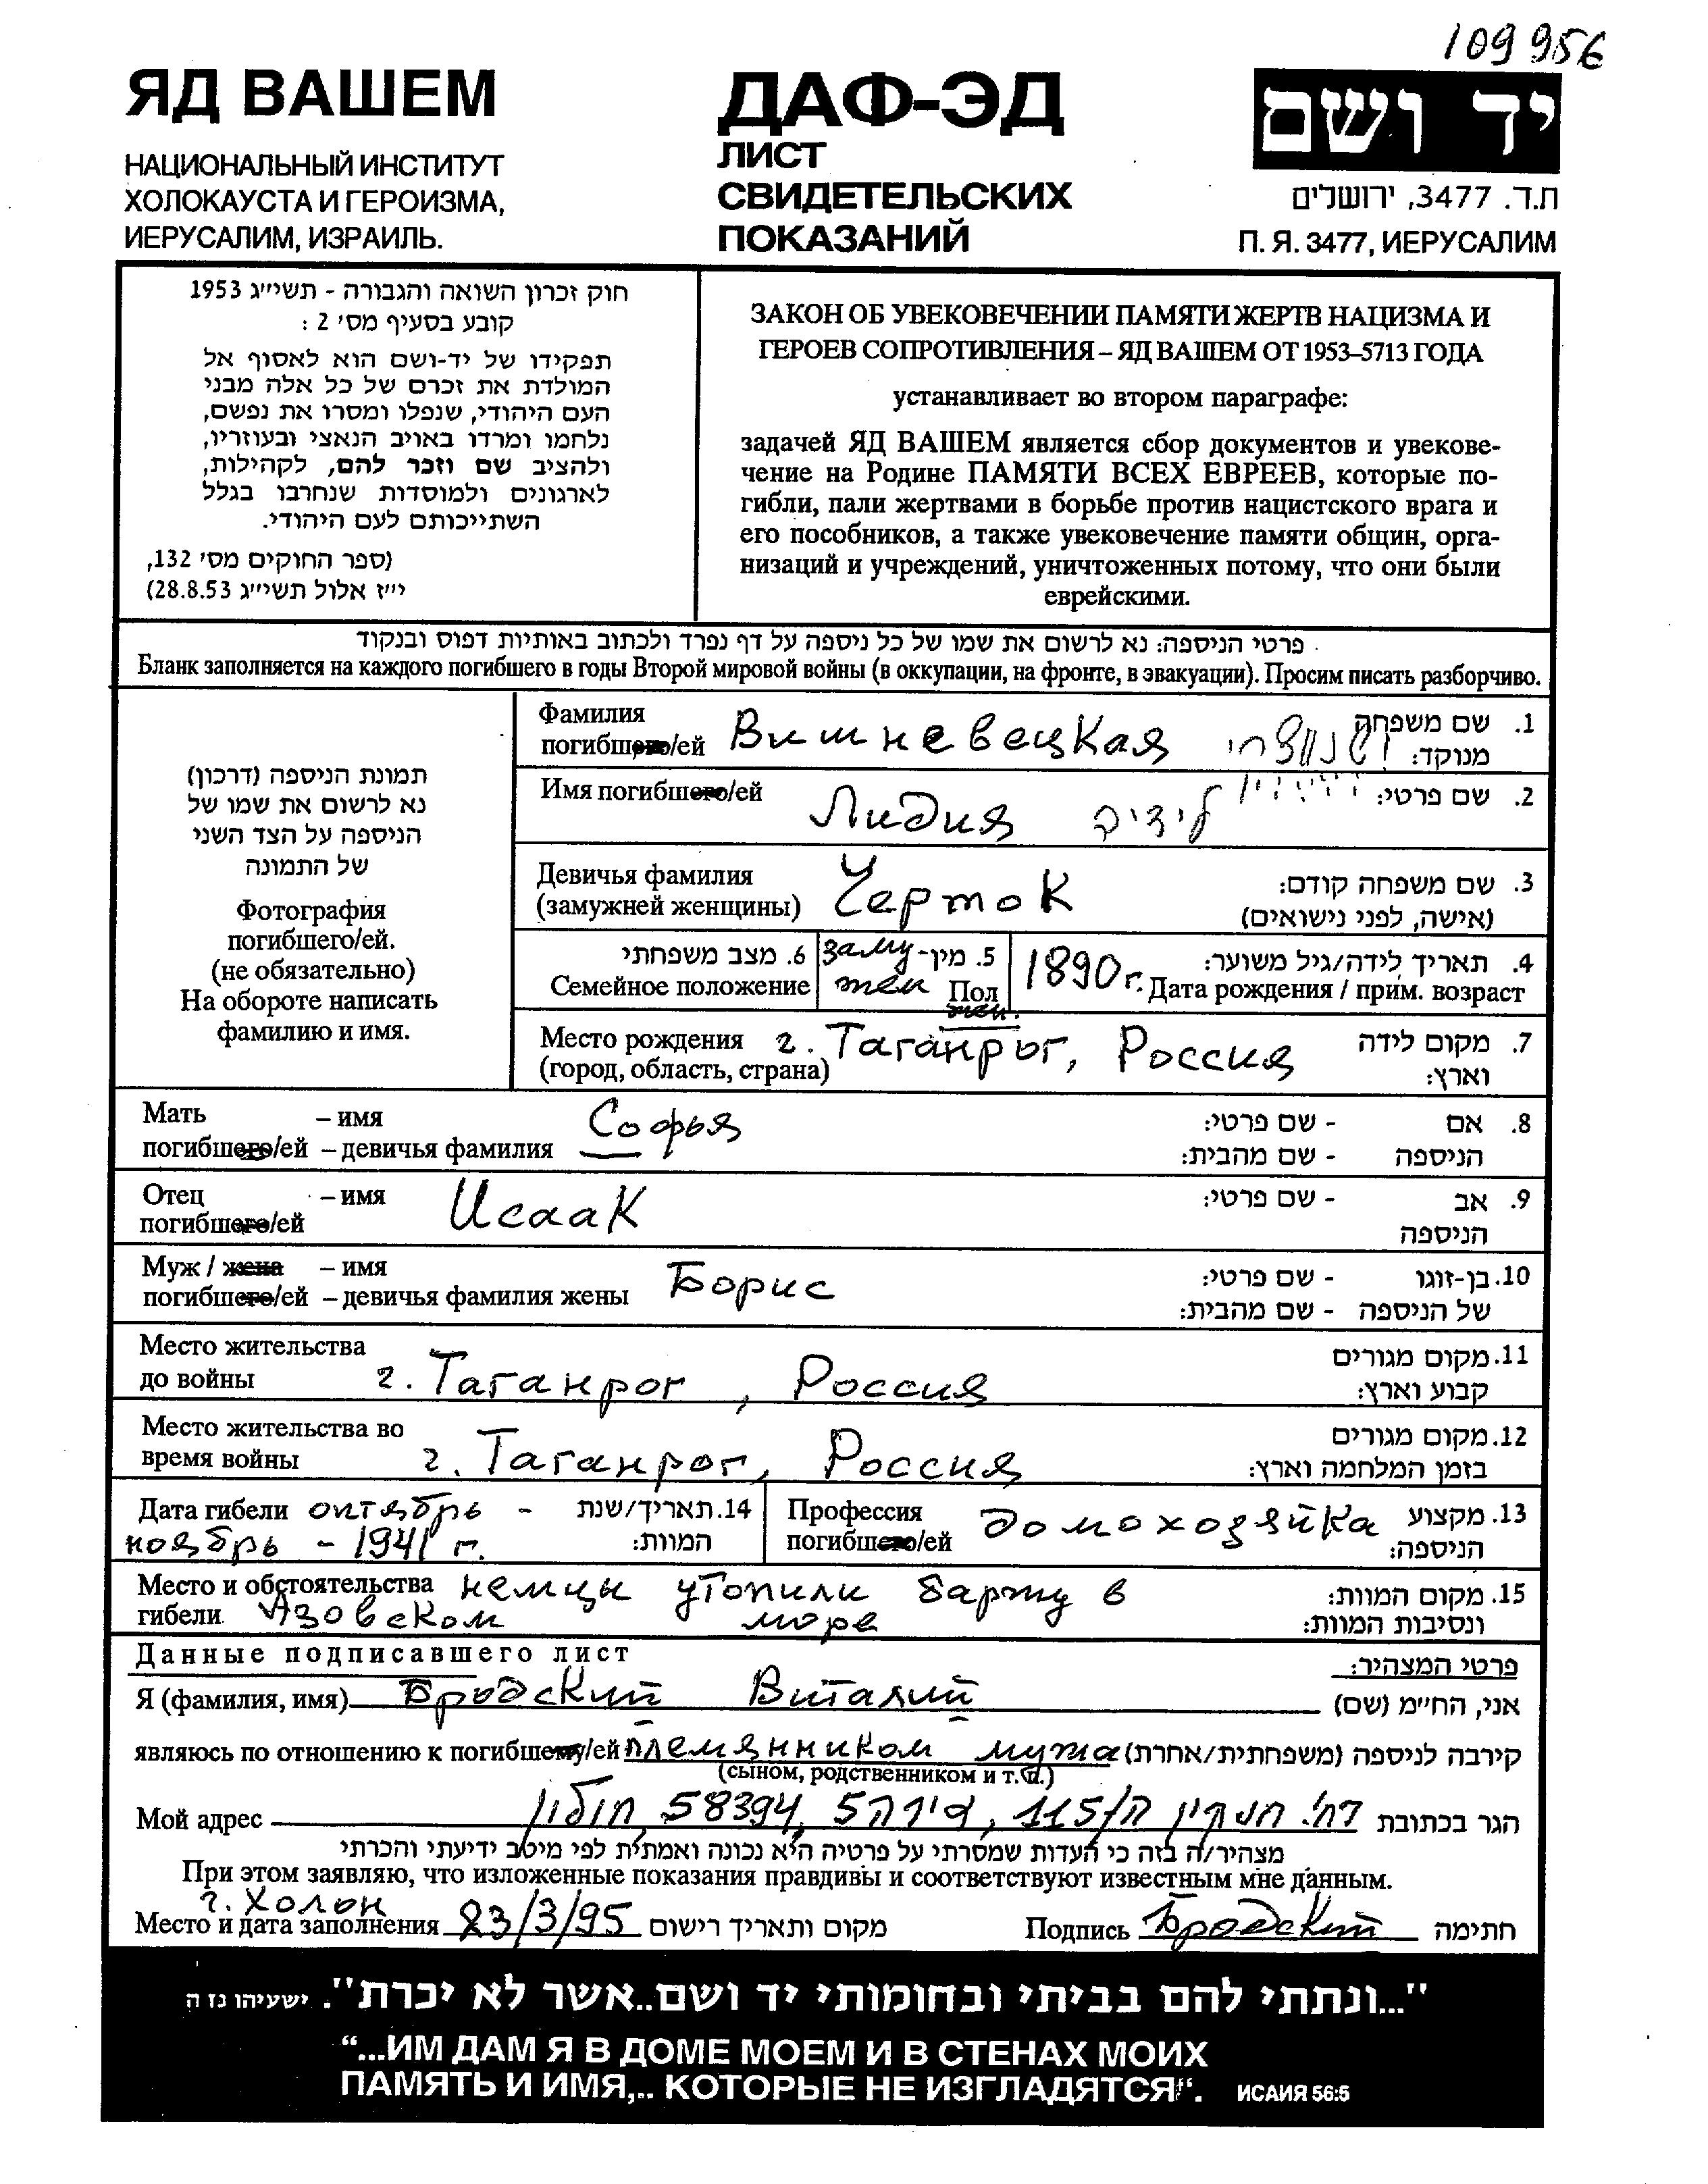 109956
ЯД ВАШЕМ
НАЦИОНАЛЬНЫЙ ИНСТИТУТ
ХОЛОКАУСТА И ГЕРОИЗМА,
ИЕРУСАЛИМ, ИЗРАИЛЬ.
ДАФ-ЭД
ЛИСТ
СВИДЕТЕЛЬСКИХ
ПОКАЗАНИЙ
יד ושם
ת.ד. 3477, ירושלים
П. Я. 3477, ИЕРУСАЛИМ
חוק זכרון השואה והגבורה - תשי״ג 1953
קובע בסעיף מס׳ 2 :
תפקידו של יד-ושם הוא לאסוף אל
המולדת את זכרם של כל אלה מבני
העם היהודי, שנפלו ומסרו את נפשם,
נלחמו ומרדו באויב הנאצי ובעוזריו,
ולהציב שם וזכר להם, לקהילות,
לארגונים ולמוסדות שנחרבו בגלל
השתייכותם לעם היהודי.
(ספר החוקים מס׳ 132,
י״ז אלול תשי״ג 28.8.53)
ЗАКОН ОБ УВЕКОВЕЧЕНИИ ПАМЯТИ ЖЕРТВ НАЦИЗМА И
ГЕРОЕВ СОПРОТИВЛЕНИЯ – ЯД ВАШЕМ ОТ 1953–5713 ГОДА
устанавливает во втором параграфе:
задачей ЯД ВАШЕМ является сбор документов и увекове-
чение на Родине ПАМЯТИ ВСЕХ ЕВРЕЕВ, которые по-
гибли, пали жертвами в борьбе против нацистского врага и
его пособников, а также увековечение памяти общин, орга-
низаций и учреждений, уничтоженных потому, что они были
еврейскими.
פרטי הניספה: נא לרשום את שמו של כל ניספה על דף נפרד ולכתוב באותיות דפוס ובנקוד
Бланк заполняется на каждого погибшего в годы Второй мировой войны (в оккупации, на фронте, в эвакуации). Просим писать разборчиво.
תמונת הניספה (דרכון)
נא לרשום את שמו של
הניספה על הצד השני
של התמונה
Фотография
погибшего/ей.
(не обязательно)
На обороте написать
фамилию и имя.
Фамилия 1. שם משפחה
погибшего/ей Вишневецкая מנוקד:
Имя погибшего/ей Лидия לידיה 2. שם פרטי:
Девичья фамилия Черток 3. שם משפחה קודם:
(замужней женщины) (אישה, לפני נישואים)
6. מצב משפחתי заму- 5. מין 1890 г. 4. תאריך לידה/גיל משוער:
Семейное положение жем Пол жен. Дата рождения / прим. возраст
Место рождения г. Таганрог, Россия 7. מקום לידה
(город, область, страна) וארץ:
Мать – имя Софья 8. אם - שם פרטי:
погибшего/ей – девичья фамилия — הניספה - שם מהבית:
Отец – имя Исаак 9. אב - שם פרטי:
погибшего/ей הניספה
Муж / жена – имя Борис 10. בן-זוגו - שם פרטי:
погибшего/ей – девичья фамилия жены של הניספה - שם מהבית:
Место жительства 11. מקום מגורים
до войны г. Таганрог, Россия קבוע וארץ:
Место жительства во 12. מקום מגורים
время войны г. Таганрог, Россия בזמן המלחמה וארץ:
Дата гибели октябрь - 14. תאריך/שנת
ноябрь - 1941 г. המוות:
Профессия домохозяйка 13. מקצוע
погибшего/ей הניספה:
Место и обстоятельства немцы утопили баржу в 15. מקום המוות:
гибели Азовском море ונסיבות המוות:
Данные подписавшего лист פרטי המצהיר:
Я (фамилия, имя) Бродский Виталий אני, הח״מ (שם)
являюсь по отношению к погибшему/ей племянником мужа קירבה לניספה (משפחתית/אחרת)
(сыном, родственником и т. п.)
Мой адрес רח׳ חנקין 115/ה, דירה 5, 58394, חולון הגר בכתובת
מצהיר/ה בזה כי העדות שמסרתי על פרטיה היא נכונה ואמתית לפי מיטב ידיעתי והכרתי
При этом заявляю, что изложенные показания правдивы и соответствуют известным мне данным.
г. Холон
Место и дата заполнения 23/3/95 מקום ותאריך רישום Подпись Бродский חתימה
"...ונתתי להם בביתי ובחומותי יד ושם..אשר לא יכרת". ישעיהו נז ה
“...ИМ ДАМ Я В ДОМЕ МОЕМ И В СТЕНАХ МОИХ
ПАМЯТЬ И ИМЯ,.. КОТОРЫЕ НЕ ИЗГЛАДЯТСЯ“. ИСАИЯ 56:5